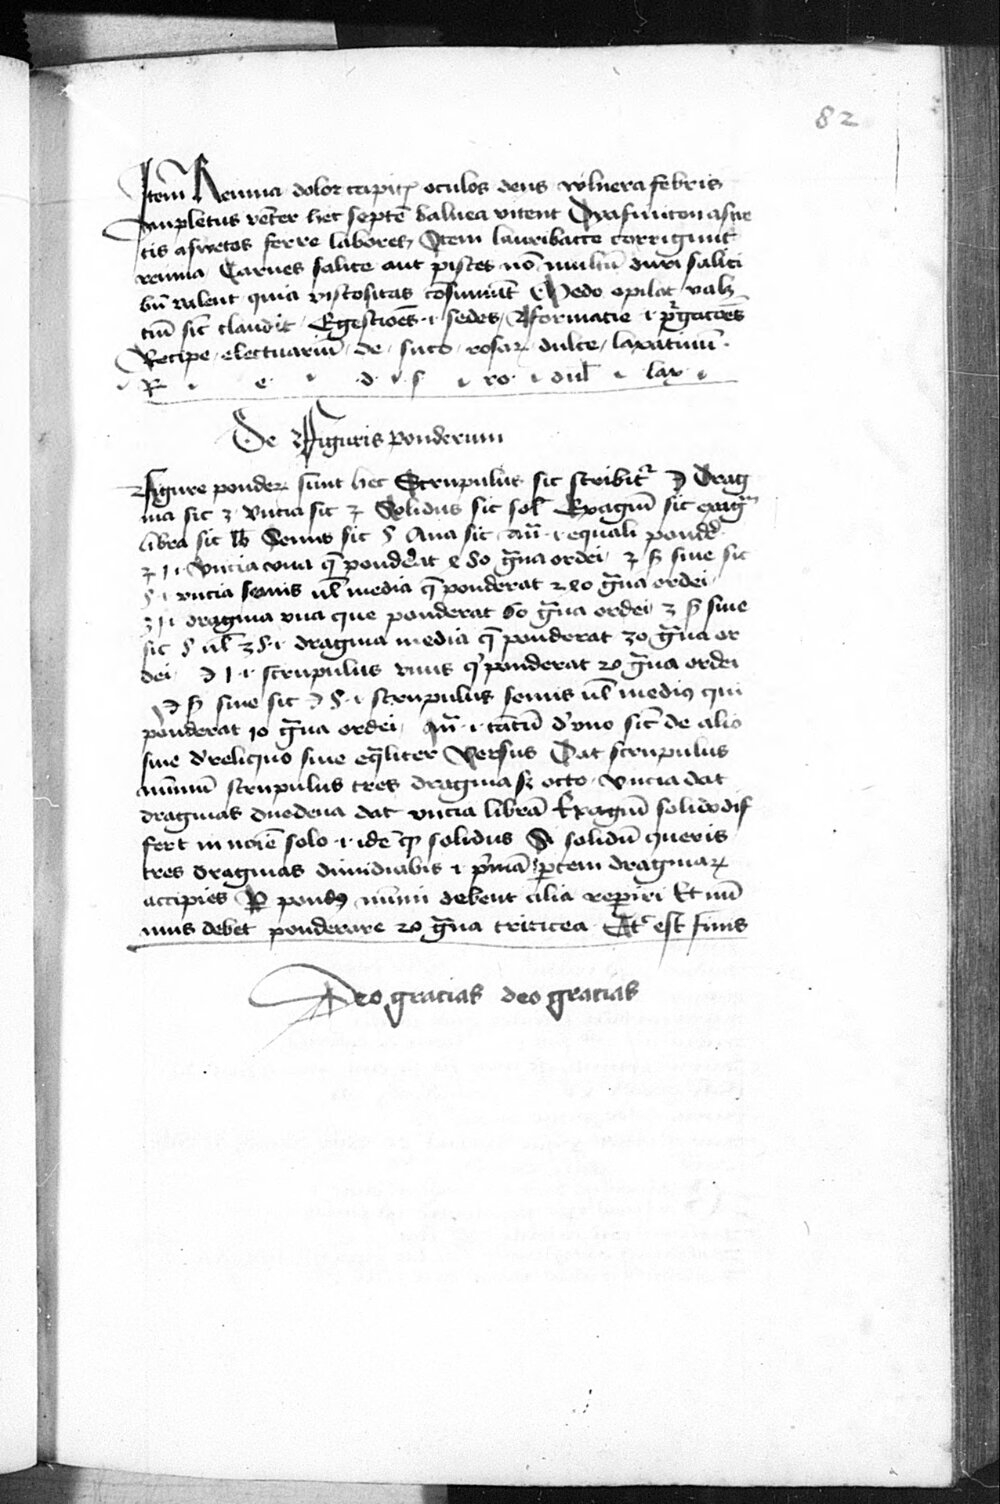 82
Item Reuma dolor capitis oculos dens vulnera febris
Impletus vēter hec septē balnea vitent Dyafiniton asue
tis asuetos ferre labores Item lauribacce corrigunt
reuma Carnes salite aut pisces nō multū duri saliti
bn̄ valent quia viscositas cōsumūt Medo opilat
sic claudit Egestiōes .i. sedes
Recipe electuariū de suco rosaꝝ dulce laxatiuum
R e d s ro dul lax
De Figuris ponderum
Figure ponderꝝ sunt hec Scrupulus sic scribit ℈ Drag
ma sic ʒ Vncia sic ℥ Solidus sic sol Exagiū sic exag
libra sic lb Semis sic ß Ana sic an̄ .i. equali pondē
℥ 1 .i. vncia vna q̄ ponderat 480 gͣna ordei ℥ ß siue sic
ß .i. vncia semis ul̄ media q̄ ponderat 240 gͣna ordei
ʒ 1 .i. dragma vna que ponderat 60 gͣna ordei ʒ ß siue
sic ß ul̄ ʒ ß .i. dragma media q̄ ponderat 30 gͣna or
dei ℈ 1 .i. scrupulus vnus q̄ ponderat 20 gͣna ordei
℈ ß siue sic ℈ ß .i. scrupulus semis ul̄ mediꝰ qui
ponderat 10 gͣna ordei an̄ .i. tātū d' vno sic de alio
siue d' reliquo siue eq̄liter Versus Dat scrupulus
nummū scrupulus tres dragma sꝫ octo vncia dat
dragmas duodena dat vncia librā Exagiū solido dif
fert in noīe solo .i. idē ꝙ solidus Si solidū queris
tres dragmas dimidiabis et p̄mā ꝑtem dragmaꝝ
accipies ꝑ pondꝰ nummi debent alia reperiri Et nū
mus debet ponderare 20 gͣna triticea Et est finis
Deo gracias deo gracias